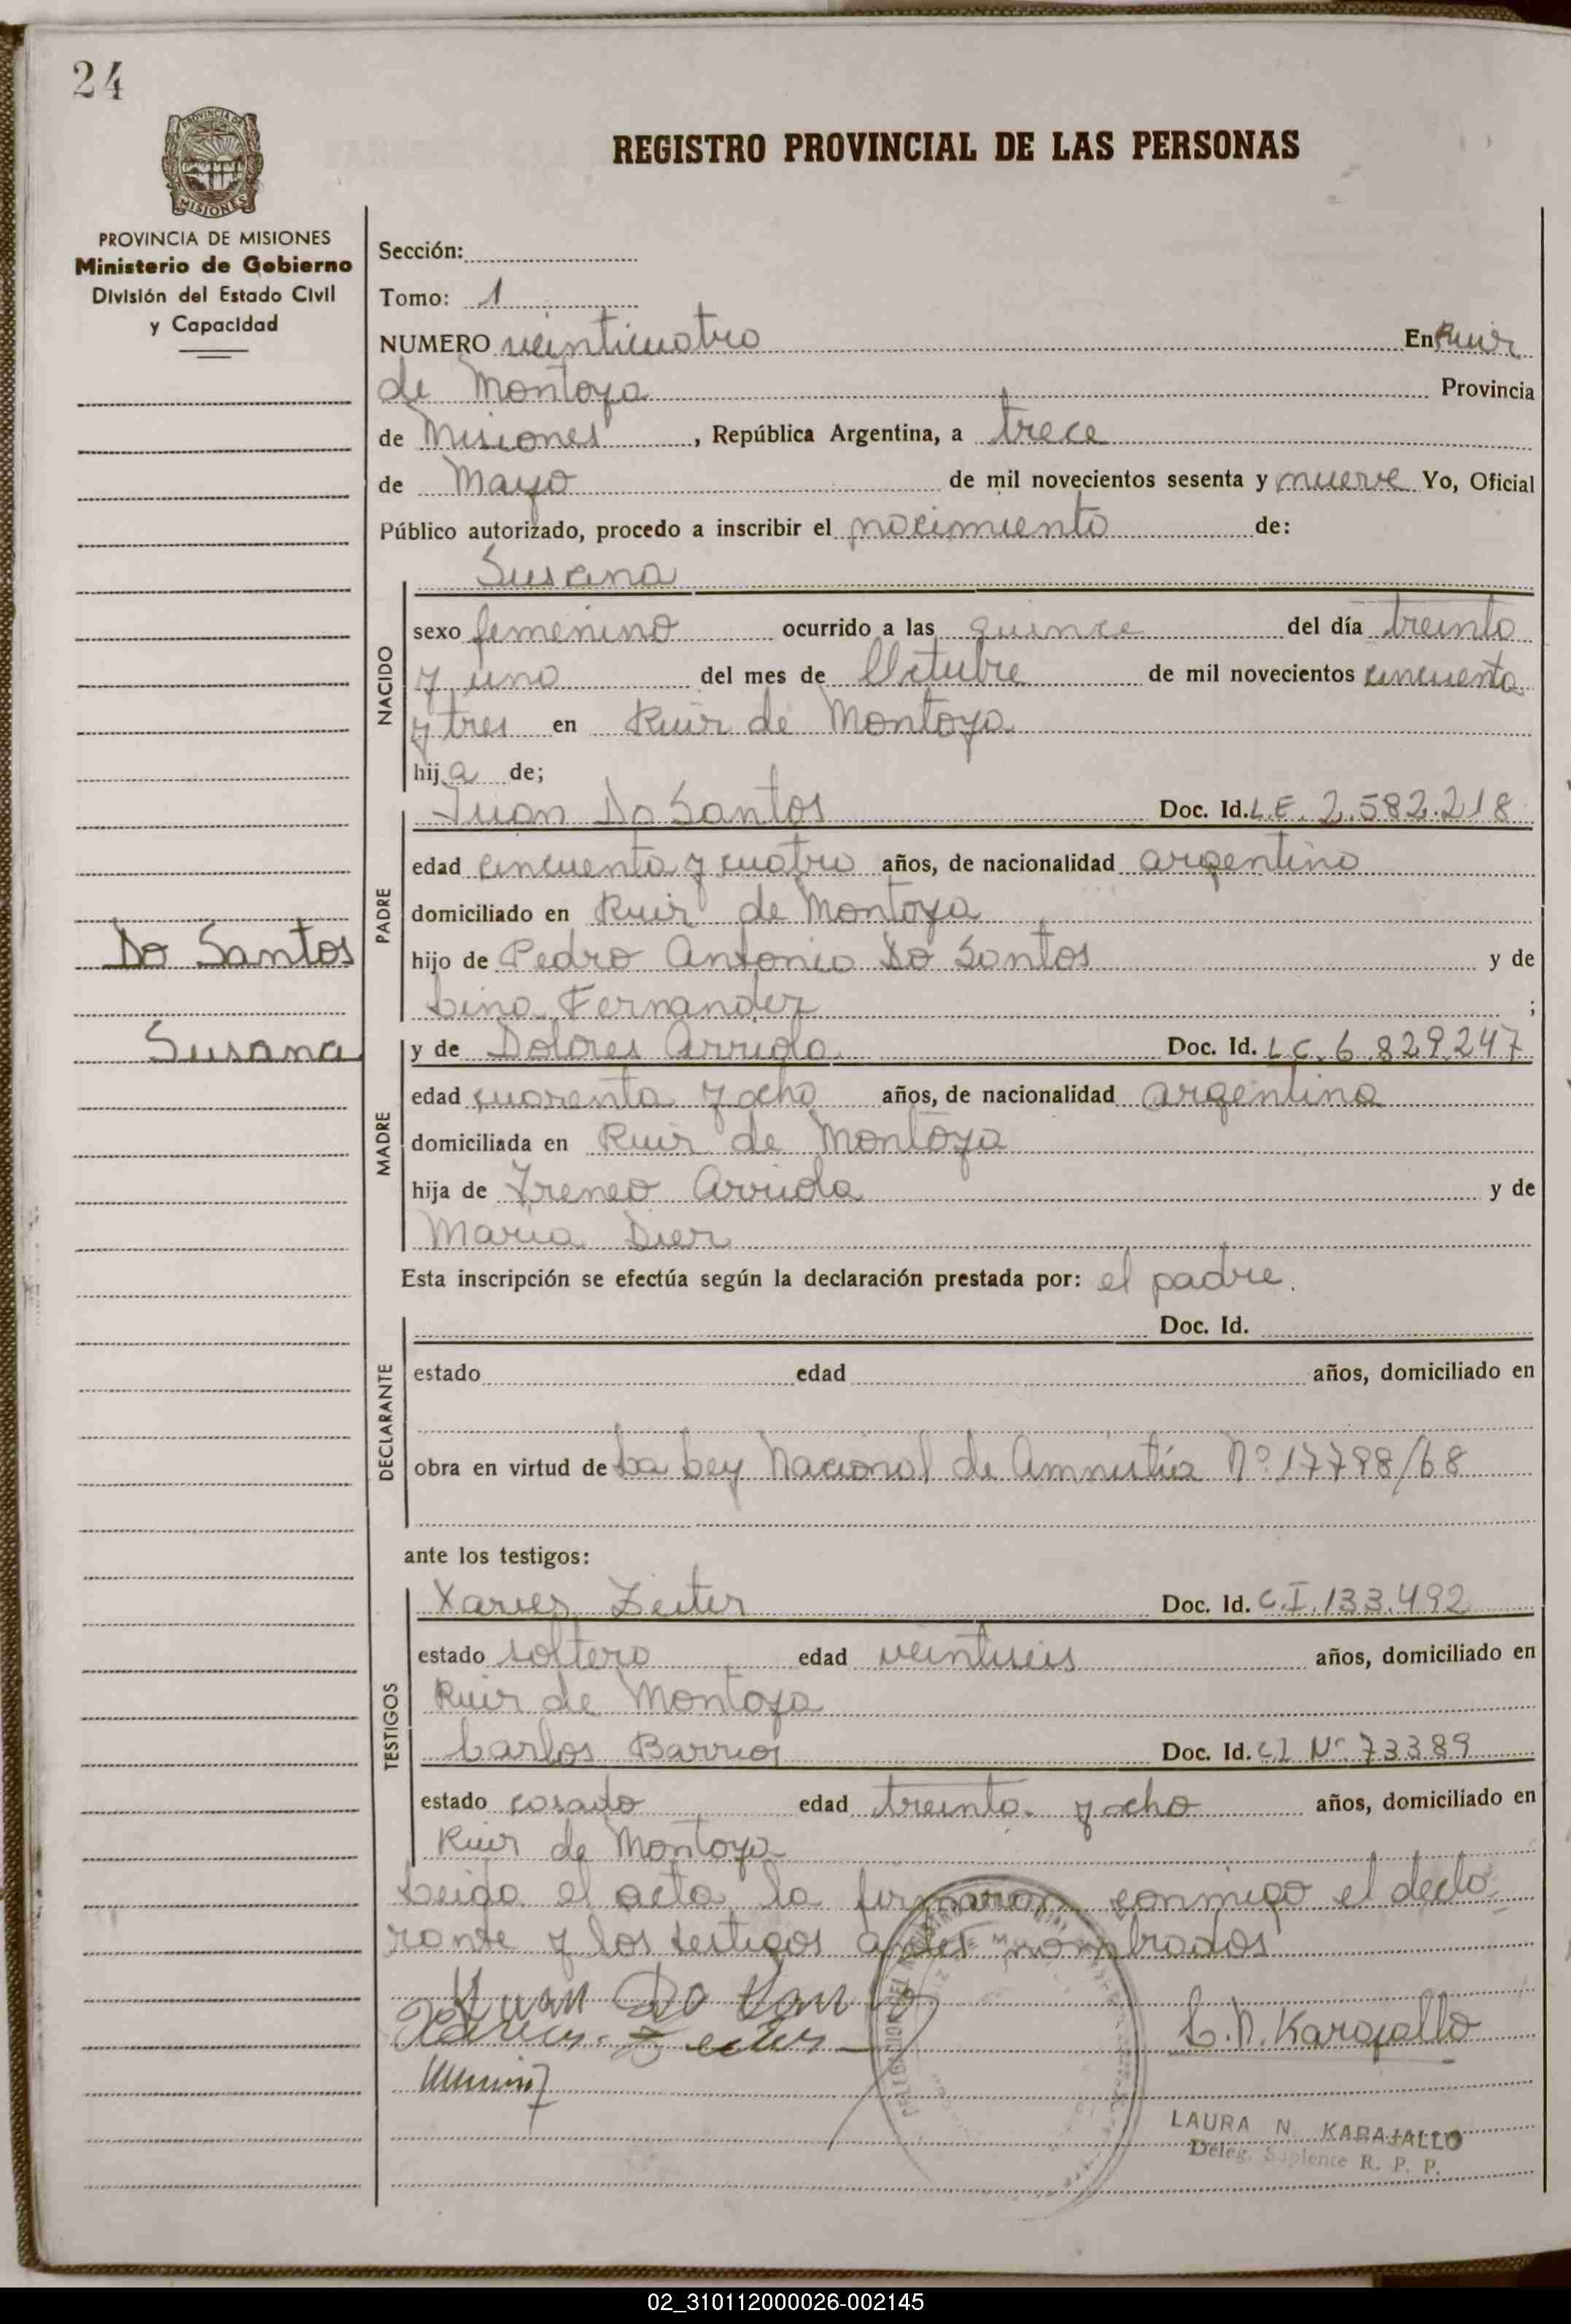 24
PROVINCIA DE
MISIONES
REGISTRO PROVINCIAL DE LAS PERSONAS
PROVINCIA DE MISIONES
Ministerio de Gobierno
División del Estado Civil
y Capacidad
Sección:
Tomo: 1
NUMERO veinticuatro En Ruiz
de Montoya Provincia
de Misiones, República Argentina, a trece
de Mayo de mil novecientos sesenta y nueve Yo, Oficial
Público autorizado, procedo a inscribir el nacimiento de:
Susana
NACIDO
sexo femenino ocurrido a las quince del día treinta
y uno del mes de Octubre de mil novecientos cincuenta
y tres en Ruiz de Montoya
hija de;
PADRE
Juan Do Santos Doc. Id. L.E. 2.582.218
edad cincuenta y cuatro años, de nacionalidad argentino
domiciliado en Ruiz de Montoya
Do Santos
hijo de Pedro Antonio Do Santos y de
Lina Fernandez ;
Susana
MADRE
y de Dolores Arriola Doc. Id. L.C. 6.829.247
edad cuarenta y ocho años, de nacionalidad argentina
domiciliada en Ruiz de Montoya
hija de Ireneo Arriola y de
Maria Diez
Esta inscripción se efectúa según la declaración prestada por: el padre.
DECLARANTE
Doc. Id.
estado edad años, domiciliado en
obra en virtud de La Ley Nacional de Amnistía Nº 17798/68
ante los testigos:
TESTIGOS
Xavier Zeiter Doc. Id. C.I. 133.492
estado soltero edad veintiseis años, domiciliado en
Ruiz de Montoya
Carlos Barrios Doc. Id. CI Nº 73389
estado casado edad treinta y ocho años, domiciliado en
Ruiz de Montoya
Leida el acta, la firmaron conmigo el decla-
rante y los testigos antes nombrados
Juan Do Santo
Xavier Zeiter
L. N. Karajallo
LAURA N. KARAJALLO
Deleg. Suplente R. P. P.
02_310112000026-002145